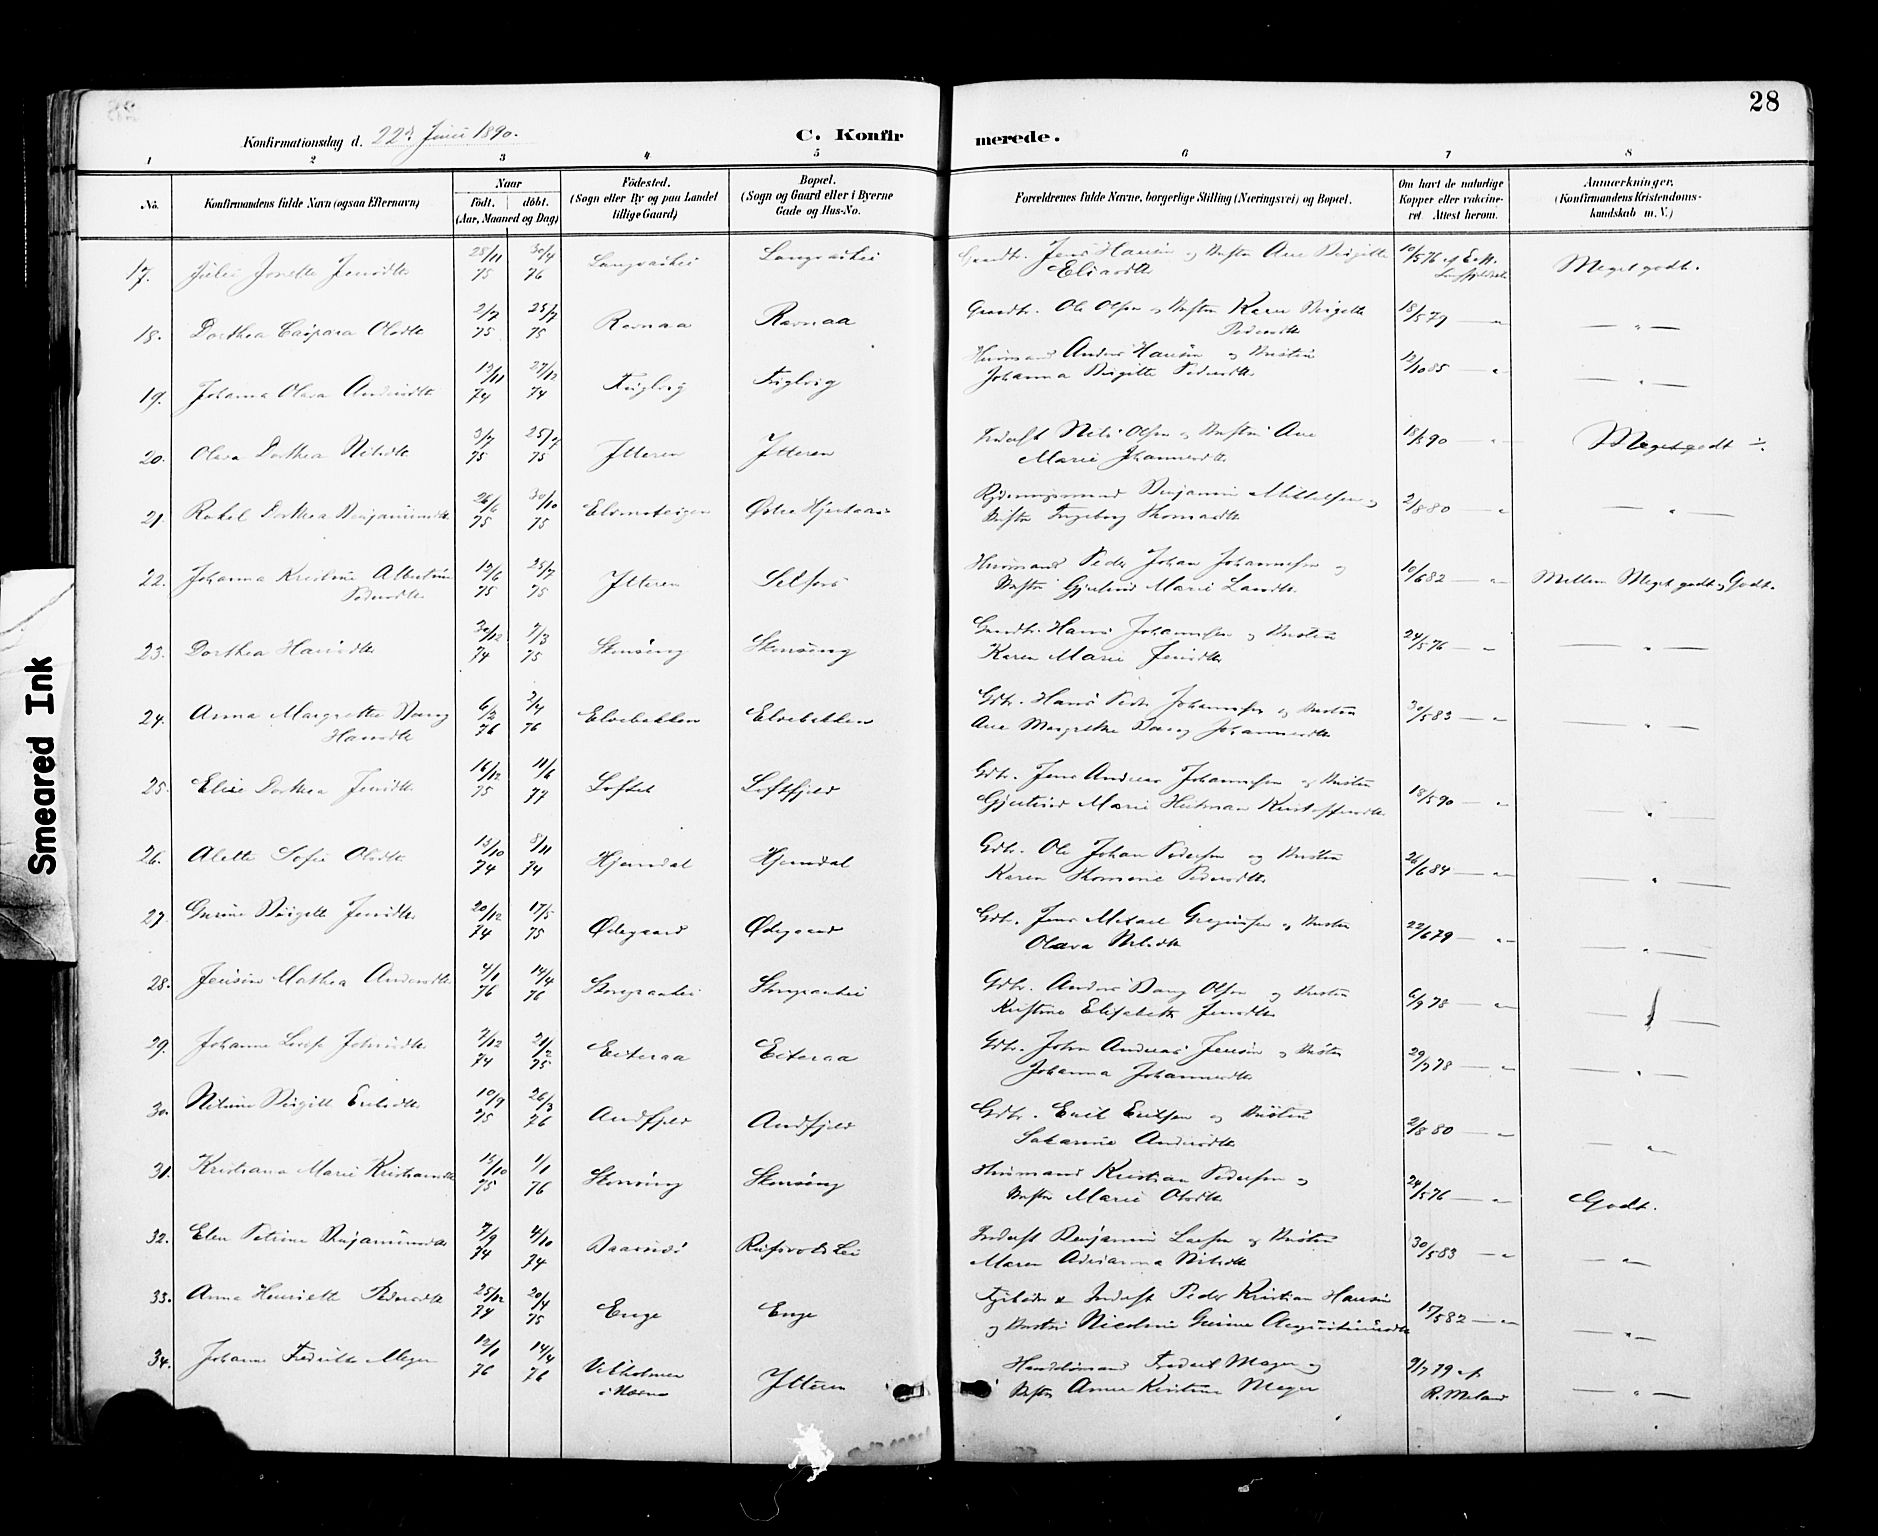 28
Konfirmationsdag d. 22d Juni 1890.
C. Konfirmerede.
1 2 3 4 5 6 7 8
No.
Konfirmandens fulde Navn (ogsaa Efternavn)
Naar
født. døbt.
(Aar, Maaned og Dag)
Fødested.
(Sogn eller By og paa Landet
tillige Gaard)
Bopæl.
(Sogn og Gaard eller i Byerne
Gade og Hus-No.
Forældrenes fulde Navne, borgerlige Stilling (Næringsvei) og Bopæl.
Om havt de naturlige
Kopper eller vakcine-
ret. Attest herom.
Anmærkninger.
(Konfirmandens Kristendoms-
kundskab m. V.)
17. Julie Jonette Jensdtr 28/11 75 30/4 76 Gaardbr. Jens Hansen og Hustru Ane Birgitte
Meget godt.
18. Dorthea Caspara Olsdtr 2/7 75 25/7 75 Ravnaa Ravnaa Gaardbr. Ole Olsen og Hustru Karen Birgitte
Pedersdtr 18/5 79 — " — " —
19. Johanna Olava Andersdtr 13/11 74 27/12 74 Fuglvig Fuglvig Husmand Anders Hansen og Hustru
Johanna Birgitte Pedersdtr 12/10 85 — " — " —
20. Olava Dorthea Nilsdtr 3/7 75 25/7 75 Ytteren Ytteren Inderst Nils Olsen og Hustru Ane
Marie Johannesdtr 18/5 90 — " Meget godt ÷
21. Rakel Dorthea Benjaminsdtr 26/6 75 30/10 75 Rydningsmand Benjamin Mikkelsen og
Hustru Ingeborg Thomasdtr 2/8 80 — " — " —
22. Johanna Kristine Albertine
Pedersdtr 12/6 75 25/7 75 Ytteren Selfors Husmand Peder Johan Johannesen og
Hustru Gjertrud Marie Larsdtr 10/6 82 — " Mellem Meget godt og Godt.
23. Dorthea Hansdtr 30/12 74 7/3 75 Skonseng Skonseng Gaardbr. Hans Johannesen og Hustru
Karen Marie Jensdtr 24/5 76 — " — " —
24. Anna Margrethe Dang
Hansdtr 6/2 76 2/4 76 Elvebakken Elvebakken Gdbr. Hans Peder Johannesen og Hustru
Ane Margrethe Dang Johannesdtr 30/5 83 — " — " —
25. Elise Dorthea Jensdtr 16/12 75 11/6 77 Loftfjeld Gdbr. Jens Andreas Johannesen og Hustru
Gjertrud Marie Kristoffersdtr 18/5 90 — " — " —
26. Alette Sofie Olsdtr 15/10 74 8/11 74 Hjemdal Hjemdal Gdbr. Ole Johan Pedersen og Hustru
Karen Thomine Pedersdtr 26/6 84 — " — " —
27. Gurine Birgitte Jensdtr 20/12 74 17/5 75 Ødegaard Ødegaard Gdbr. Jens Mikael Gregusen og Hustru
Olava Nilsdtr 22/6 79 — " — " —
28. Jensine Mathea Andersdtr 4/1 76 14/4 76 Gdbr. Anders Dang Olsen og Hustru
Kristine Elisabeth Jensdtr 6/9 78 — " — " —
29. Johanne Lovise Johnsdtr 7/12 74 21/2 75 Eiteraa Eiteraa Gdbr. John Andreas Jensen og Hustru
Johanna Johannesdtr 29/9 78 — " — " —
30. Nilsine Birgitte Eriksdtr 10/9 75 26/3 76 Andfjeld Andfjeld Gdbr. Erik Eriksen og Hustru
Andersdtr 2/8 80 — " — " —
31. Kristiana Marie Kristiansdtr 15/10 75 1/1 76 Skonseng Skonseng Husmand Kristian Pedersen og
Hustru Marie Olsdtr 24/5 76 — " Godt.
32. Elen Petrine Benjaminsdtr 7/9 74 4/10 74 Inderst Benjamin Larsen og Hustru
Maren Adrianna Nilsdtr 30/5 83 — " — " —
33. Anna Henriette Pedersdtr 25/12 74 20/4 75 Enge Enge Inderst Peder Kristian Hansen
og Hustru Nicoline Gurine Augustinusdtr 15/5 82 — " — " —
34. Johanne Fredrikke Meyer 12/1 76 14/4 76 Vikholmen
i Næsna Ytteren Handelsmand Fredrik Meyer og
Hustru Anne Kristine Meyer 9/7 79 af
R. Meland — " —
Smeared Ink